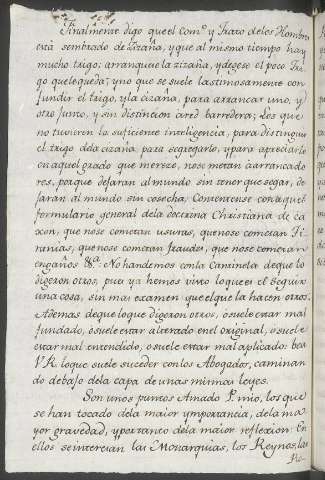 Finalmente digo que el Com.º y Trato de los Hombres
está sembrado de Zizaña, y que al mismo tiempo hay
mucho trigo: arranquese la zizaña, y degese el poco Tri
go que le queda; y no que se suele lastimosamente con
fundir el trigo, y la cizaña, para arrancar uno, y
otro junto, y sin distincion a red barredera; Los que
no tuvieren la suficiente inteligencia, para distinguir
el trigo de la cizaña para segregarlo, y para apreciarlo
en aquel grado que merece, no se metan a arrancado
res, porque dejaran al mundo sin tener que segar, de
jaran al mundo sin cosecha. Contentense con aquel
formulario general de la doctrina Christiana de ca
xon, que no se cometan usuras, que no se cometan Ti
ranias, que no se cometan fraudes, que no se cometan
engaños &.ª No handemos con la Cantinela de que lo
digeron otros, pues ya hemos visto lo que es el seguir
una cosa, sin mas examen que el que la hacen otros.
Ademas de que lo que digeron otros, ó suele estar mal
fundado, ó suele estar alterado en el original, ó suele e
star mal entendido, ó suele estar mal aplicado: bea
V. R. lo que suele suceder con los Abogados, caminan
do debajo de la capa de unas mismas leyes.
Son unos puntos Amado P. mio, los que
se han tocado de la maior ymportancia, de la ma
yor gravedad, y por tanto de la maior reflexion: En
ellos se interesan las Monarquias, los Reynos, las